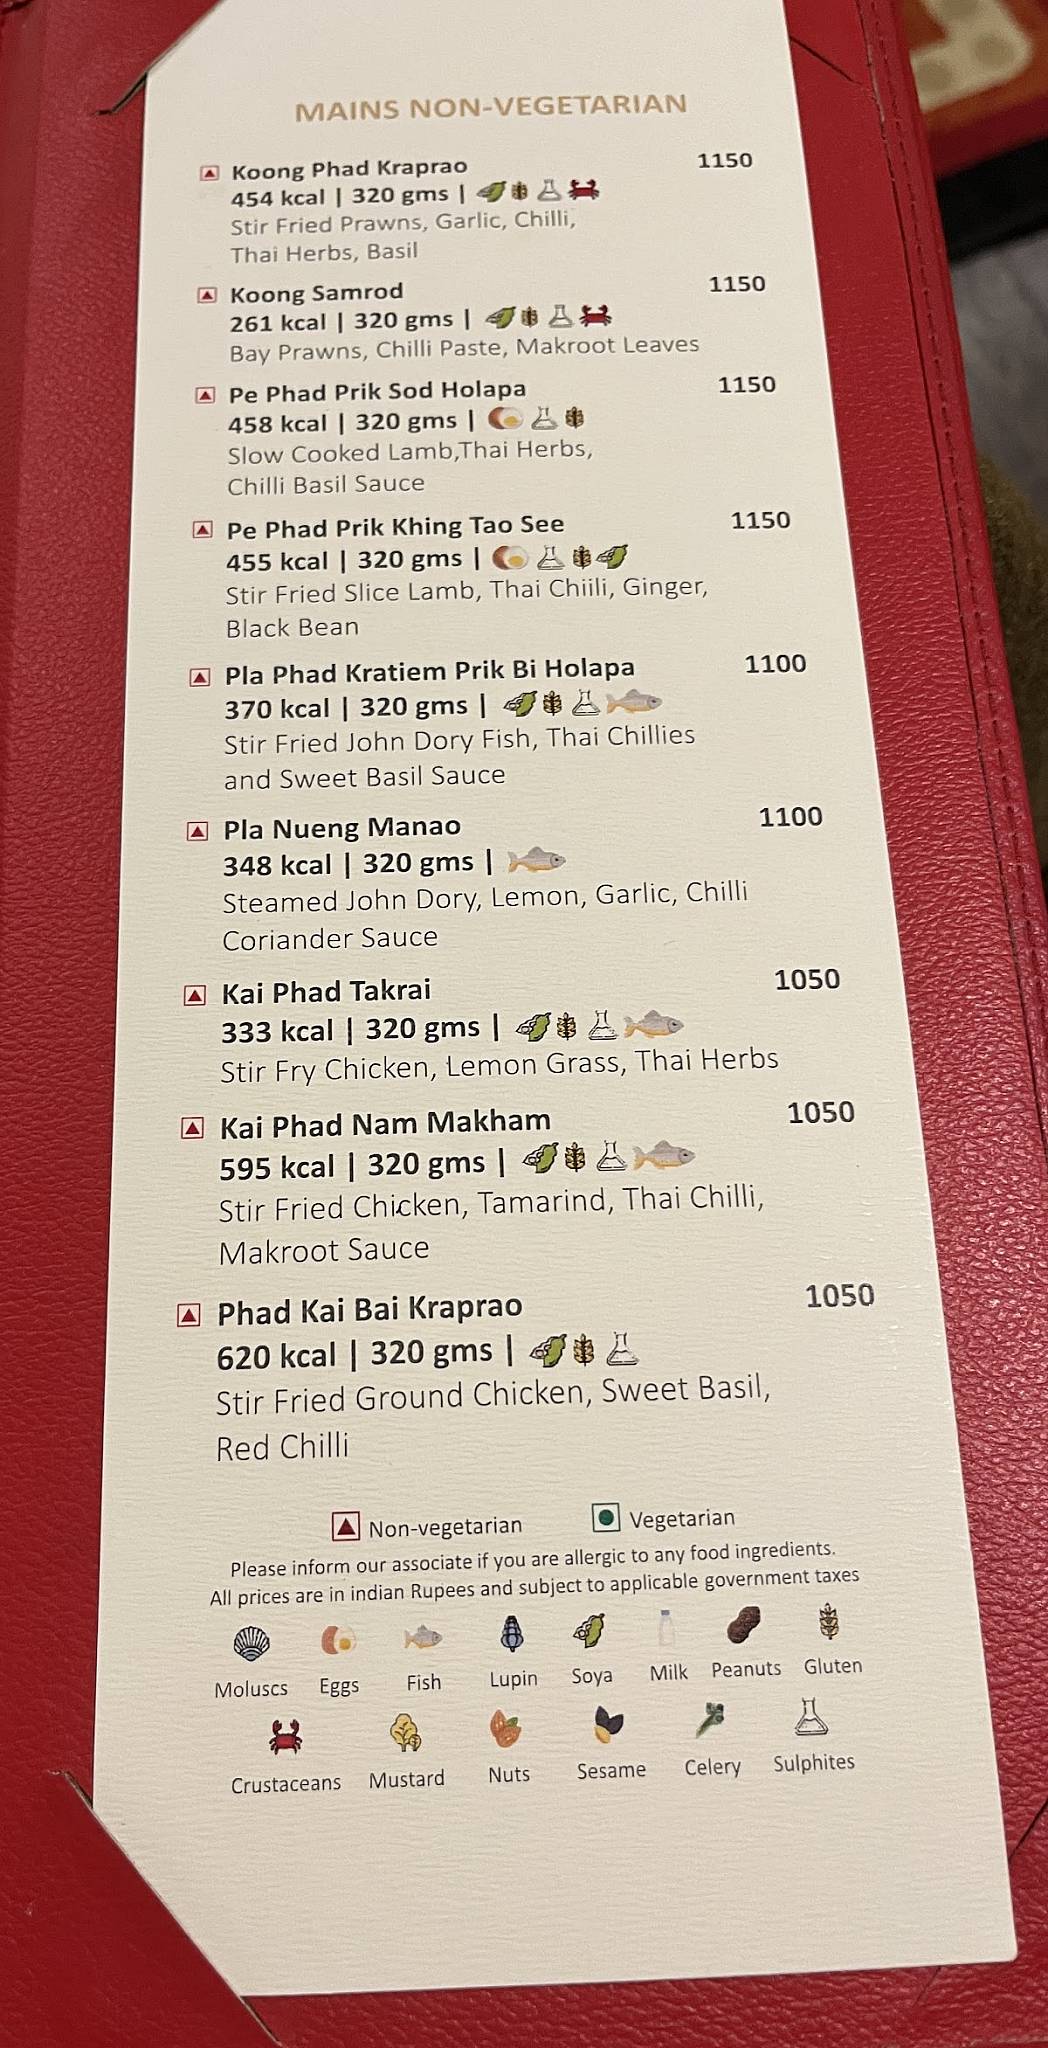 MAINS NON-VEGETARIAN
Koong Phad Kraprao 1150
454 kcal | 320 gms |
Stir Fried Prawns, Garlic, Chilli,
Thai Herbs, Basil
Koong Samrod 1150
261 kcal | 320 gms |
Bay Prawns, Chilli Paste, Makroot Leaves
Pe Phad Prik Sod Holapa 1150
458 kcal | 320 gms |
Slow Cooked Lamb,Thai Herbs,
Chilli Basil Sauce
Pe Phad Prik Khing Tao See 1150
455 kcal | 320 gms |
Stir Fried Slice Lamb, Thai Chiili, Ginger,
Black Bean
Pla Phad Kratiem Prik Bi Holapa 1100
370 kcal | 320 gms |
Stir Fried John Dory Fish, Thai Chillies
and Sweet Basil Sauce
Pla Nueng Manao 1100
348 kcal | 320 gms |
Steamed John Dory, Lemon, Garlic, Chilli
Coriander Sauce
Kai Phad Takrai 1050
333 kcal | 320 gms |
Stir Fry Chicken, Lemon Grass, Thai Herbs
Kai Phad Nam Makham 1050
595 kcal | 320 gms |
Stir Fried Chicken, Tamarind, Thai Chilli,
Makroot Sauce
Phad Kai Bai Kraprao 1050
620 kcal | 320 gms |
Stir Fried Ground Chicken, Sweet Basil,
Red Chilli
Non-vegetarian Vegetarian
Please inform our associate if you are allergic to any food ingredients.
All prices are in indian Rupees and subject to applicable government taxes
Moluscs Eggs Fish Lupin Soya Milk Peanuts Gluten
Crustaceans Mustard Nuts Sesame Celery Sulphites